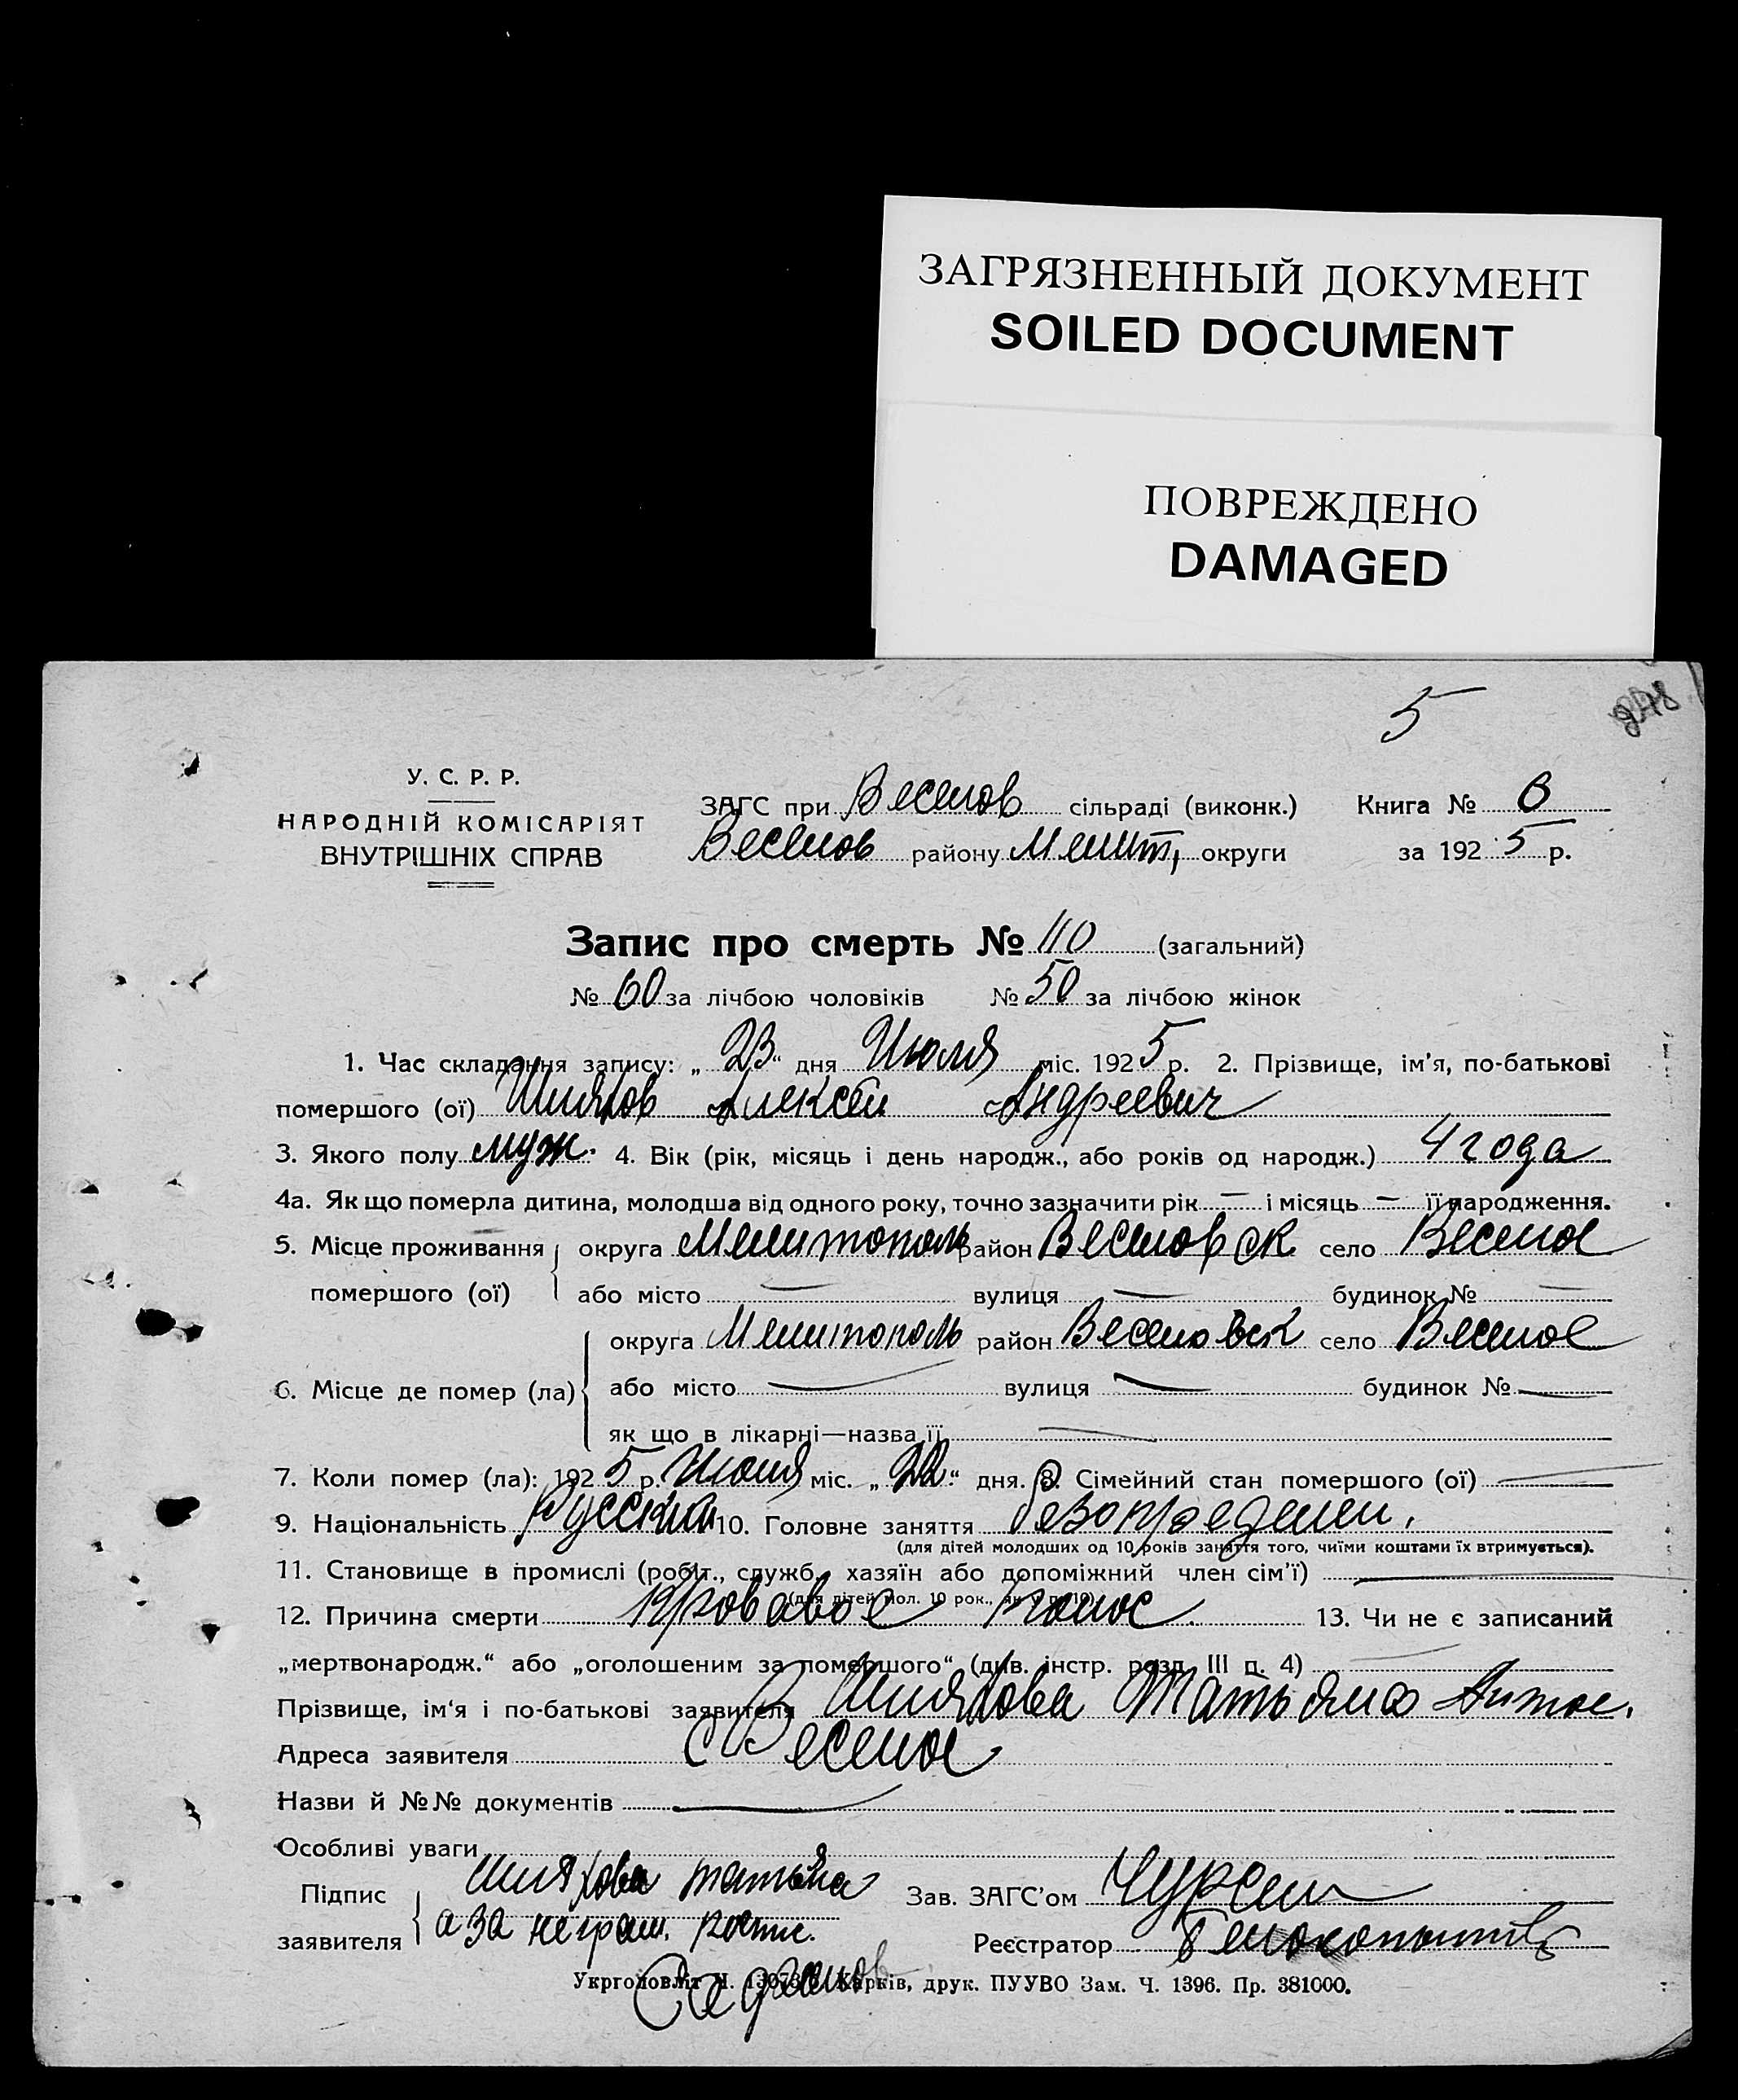 ЗАГРЯЗНЕННЫЙ ДОКУМЕНТ
SOILED DOCUMENT
ПОВРЕЖДЕНО
DAMAGED
5
У. С. Р. Р.
НАРОДНІЙ КОМІСАРІЯТ
ВНУТРІШНІХ СПРАВ
ЗАГС при Веселов сільраді (виконк.)
Веселов району Мелит, округи
Книга № 6
за 1925 р.
Запис про смерть № 110 (загальний)
№ 60 за лічбою чоловіків № 50 за лічбою жінок
1. Час складання запису: „23“ дня Июля міс. 1925 р. 2. Прізвище, ім'я, по-батькові
помершого (ої) Шляхов Алексей Андреевич
3. Якого полу муж. 4. Вік (рік, місяць і день народж., або років од народж.) 4 года
4а. Як що померла дитина, молодша від одного року, точно зазначити рік — і місяць — її народження.
5. Місце проживання округа Мелитополь район Веселовск село Веселое
помершого (ої) або місто — вулиця — будинок № —
округа Мелитополь район Веселовск село Веселое
6. Місце де помер (ла) або місто — вулиця — будинок № —
як що в лікарні—назва її —
7. Коли помер (ла): 1925 р. Июля міс. „22“ дня. 8. Сімейний стан помершого (ої) —
9. Національність Русский 10. Головне заняття безопределен.
(для дітей молодших од 10 років заняття того, чиїми коштами їх втримується).
11. Становище в промислі (робіт., служб., хазяїн або допоміжний член сім'ї) —
12. Причина смерти Кровавое понос. 13. Чи не є записаний
„мертвонародж.“ або „оголошеним за помершого“ (див. інстр. розд. III п. 4) —
Прізвище, ім'я і по-батькові заявителя Шляхова Татьяна Антон.
Адреса заявителя с Веселое
Назви й №№ документів —
Особливі уваги
Підпис Шляхова Татьяна Зав. ЗАГС'ом
заявителя а за неграм. роспис. Реєстратор Белокопытов
Укрголовліт Харків, друк. ПУУВО Зам. Ч. 1396. Пр. 381000.